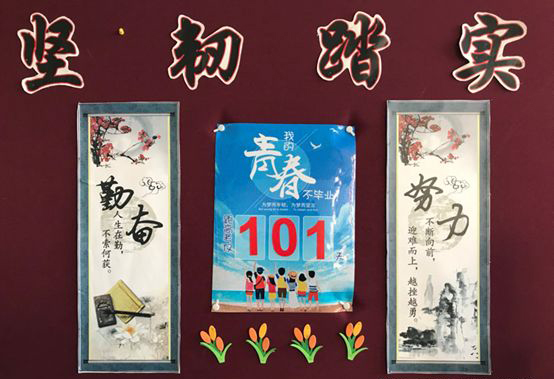 坚韧踏实
勤奋
人生在勤，
不索何获。
我的
青春
不毕业
为梦而年轻，为梦而坚定
101
天
努力
不断向前，
迎难而上，
越挫越勇。